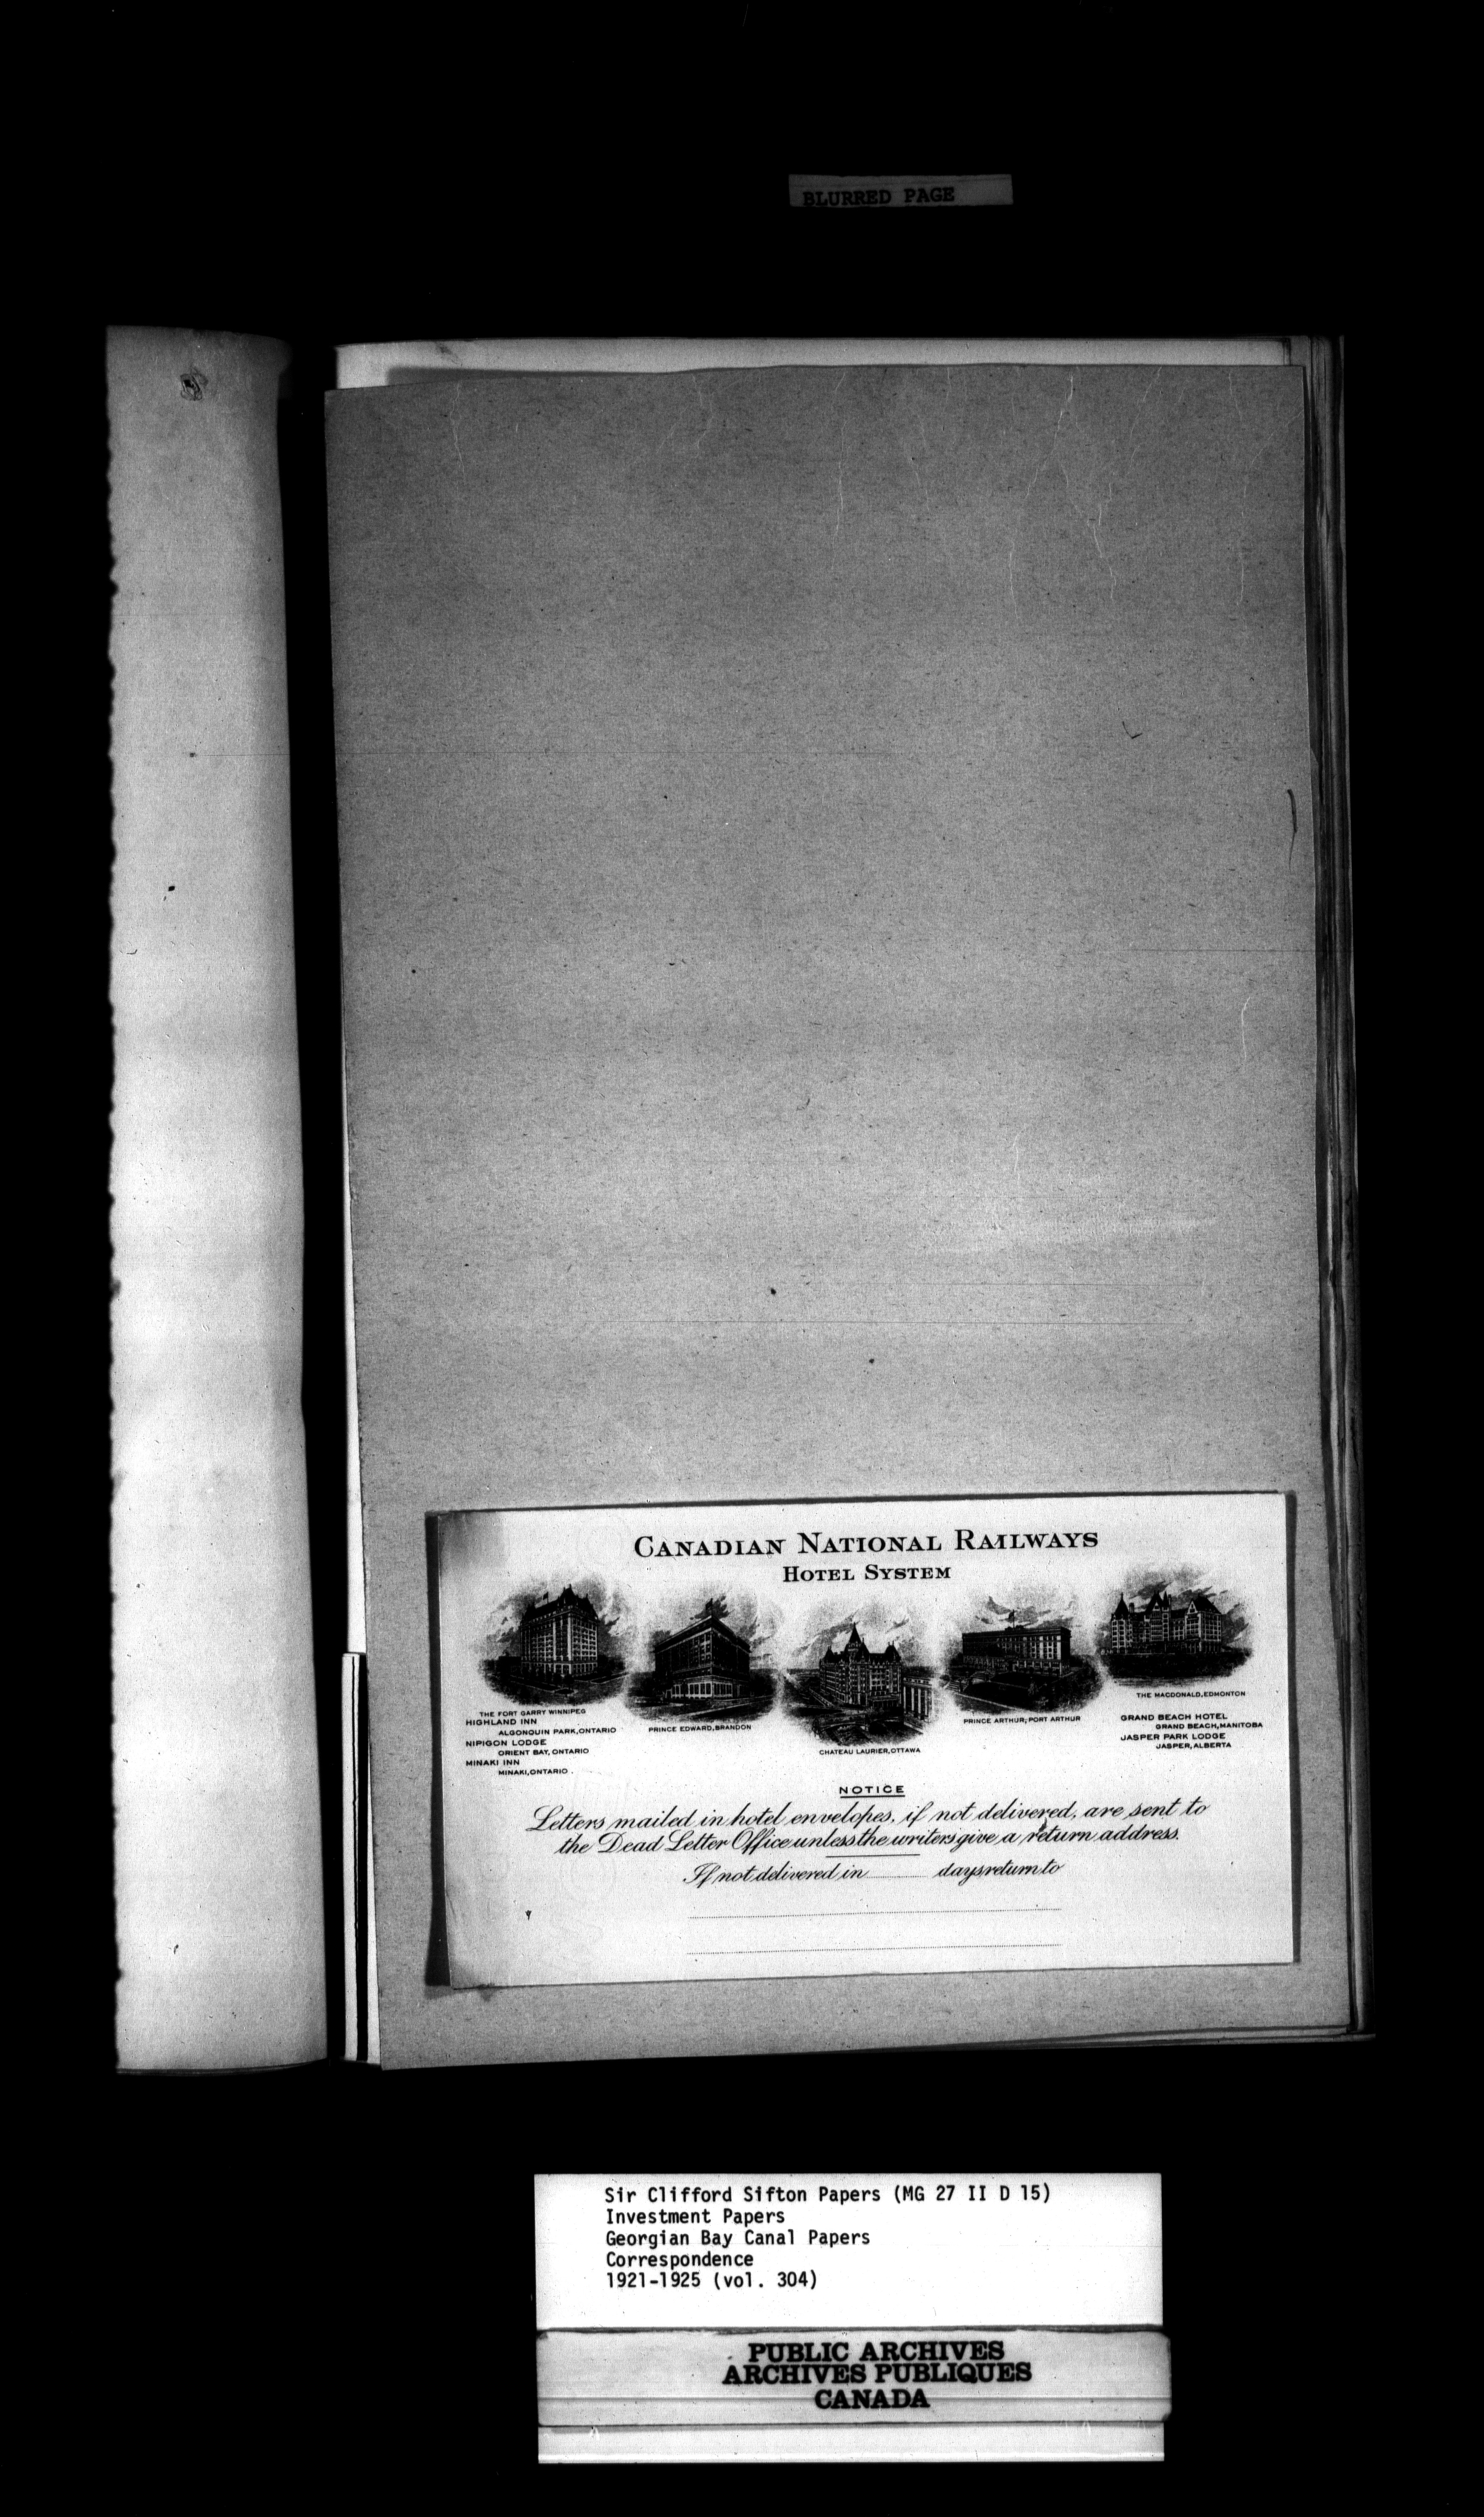 BLURRED PAGE
CANADIAN NATIONAL RAILWAYS
HOTEL SYSTEM
THE FORT GARRY WINNIPEG
HIGHLAND INN
ALGONQUIN PARK, ONTARIO
NIPIGON LODGE
ORIENT BAY, ONTARIO
MINAKI INN
MINAKI, ONTARIO.
PRINCE EDWARD, BRANDON
CHATEAU LAURIER, OTTAWA
PRINCE ARTHUR, PORT ARTHUR
THE MACDONALD, EDMONTON
GRAND BEACH HOTEL
GRAND BEACH, MANITOBA
JASPER PARK LODGE
JASPER, ALBERTA
NOTICE
Letters mailed in hotel envelopes, if not delivered, are sent to
the Dead Letter Office unless the writers give a return address.
If not delivered in ........ days return to
Sir Clifford Sifton Papers (MG 27 II D 15)
Investment Papers
Georgian Bay Canal Papers
Correspondence
1921-1925 (vol. 304)
PUBLIC ARCHIVES
ARCHIVES PUBLIQUES
CANADA